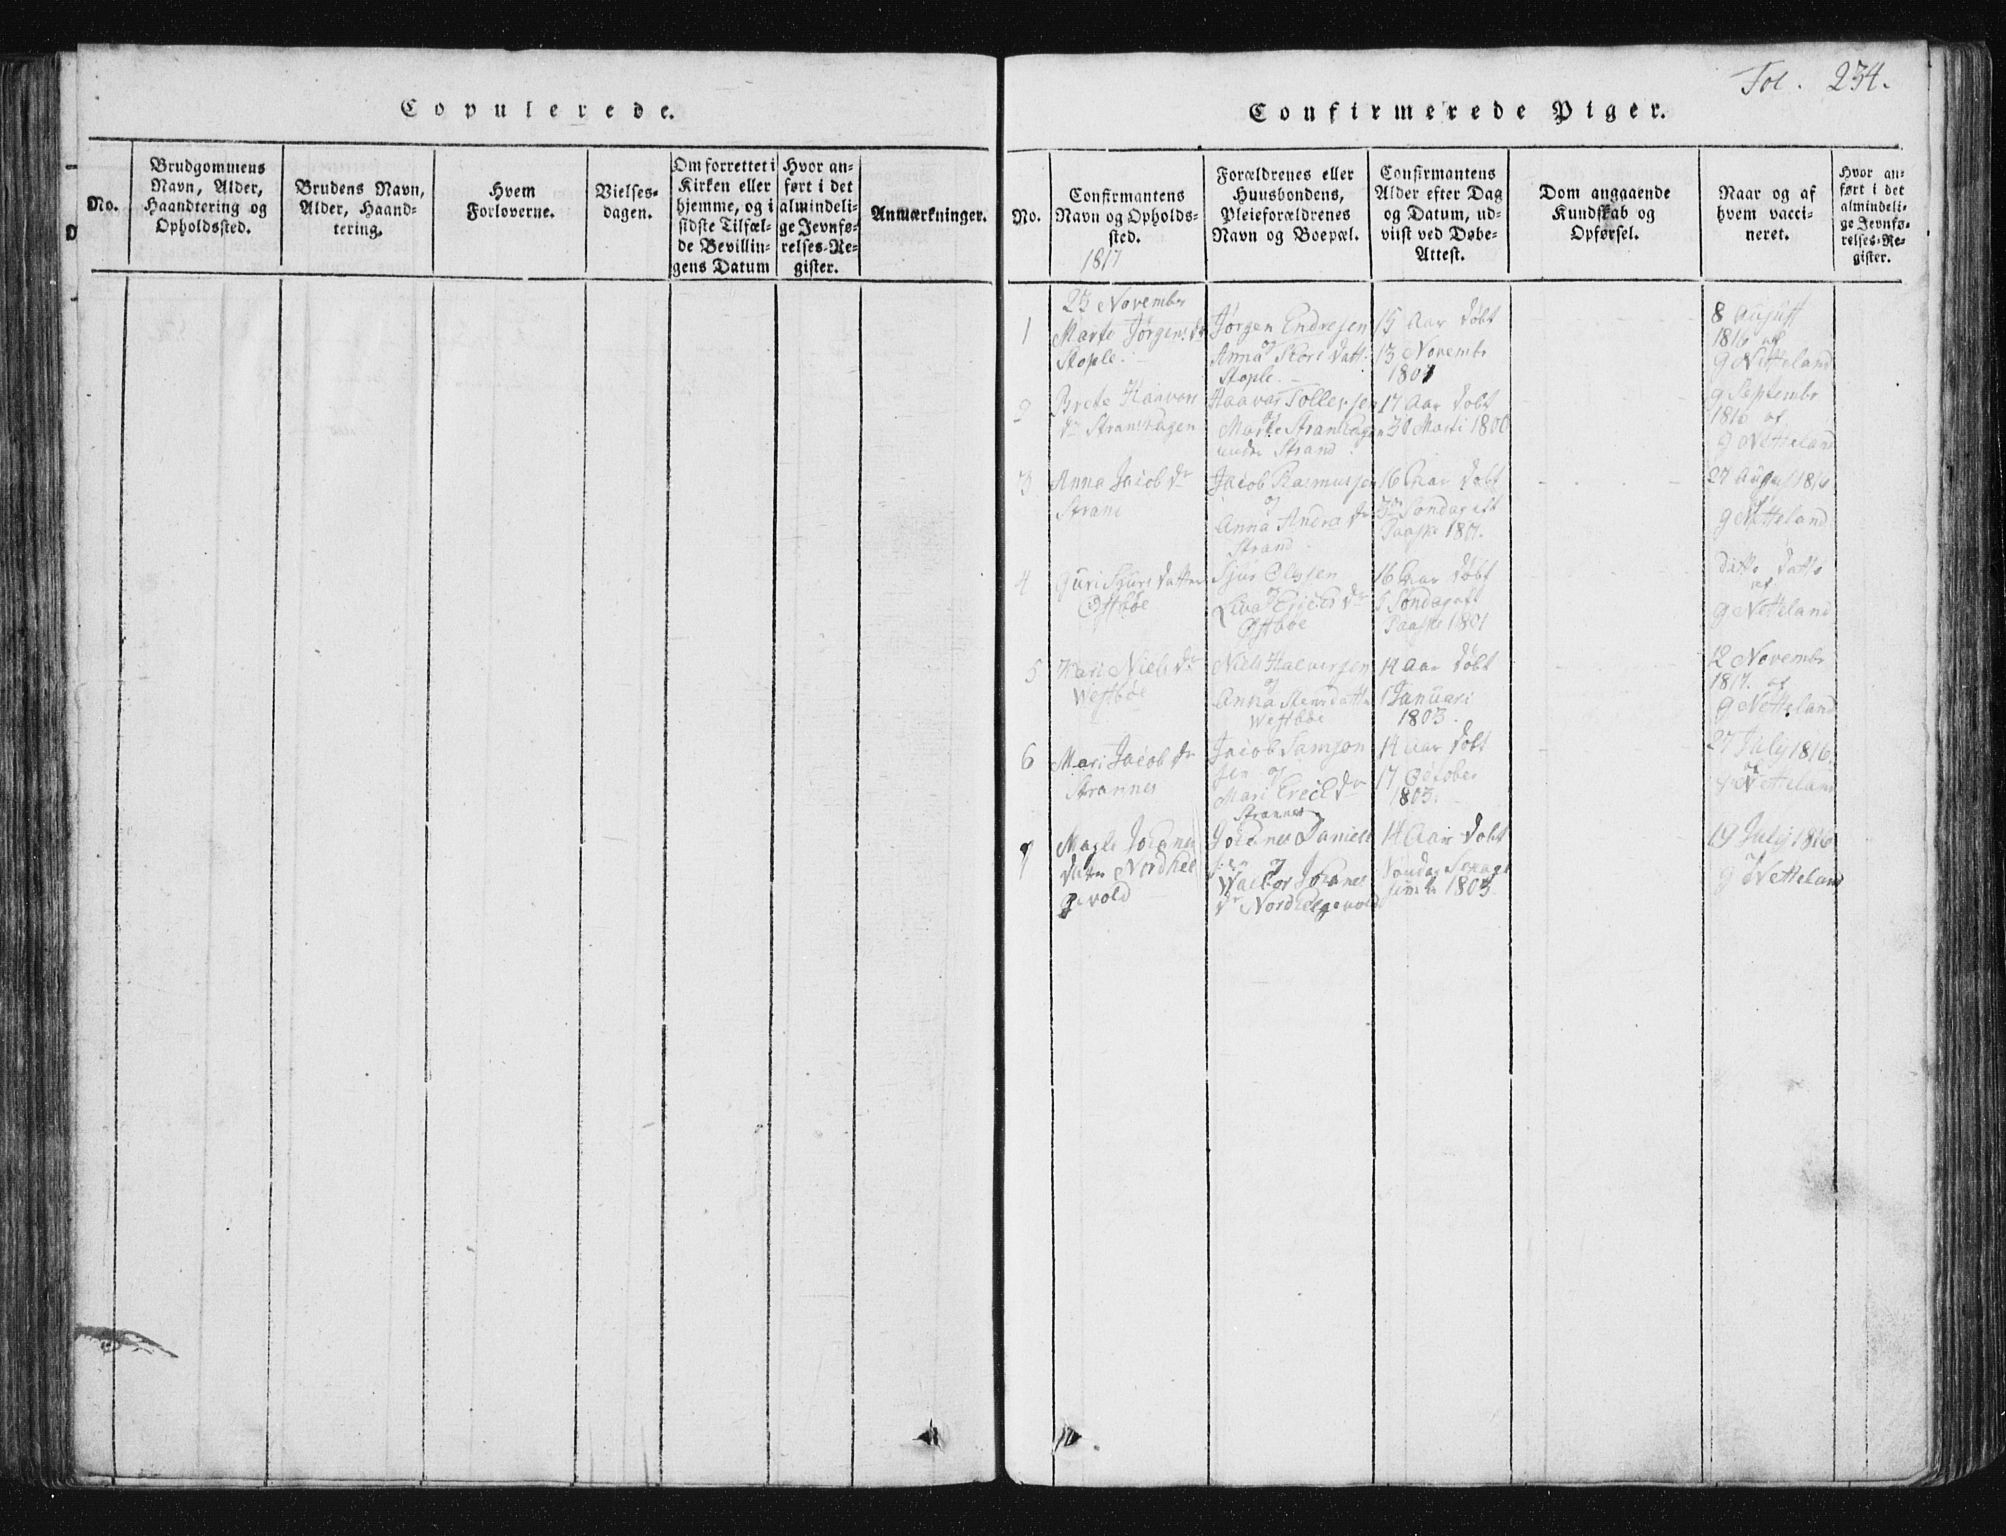 Copulerede.
No.
Brudgommens
Navn, Alder,
Haandtering og
Opholdssted.
Brudens Navn,
Alder, Haand-
tering.
Hvem
Forloverne.
Vielses-
dagen.
Om forrettet i
Kirken eller
hjemme, og i
sidste Tilfæl-
de Bevillin-
gens Datum
Hvor an-
ført i det
almindeli-
ge Jevnfø-
relses-Re-
gister.
Anmærkninger.
Fol. 234.
Confirmerede Piger.
No.
Confirmantens
Navn og Opholds-
sted.
1817
Forældrenes eller
Huusbondens,
Pleieforældrenes
Navn og Boepæl.
Confirmantens
Alder efter Dag
og Datum, ud-
viist ved Døbe-
Attest.
Dom angaaende
Kundskab og
Opførsel.
Naar og af
hvem vacci-
neret.
Hvor an-
ført i det
almindeli-
ge Jevnfø-
relses-Re-
gister.
23 Novembr
1
Marte Jørgens dr
Stople.
Jørgen Endresen
og
Anna Kari datt.
Stople.
15 Aar døbt
13 Novembr
1801
8 August
1816 af
G Netteland
2
Brete Haavor
dr Stranhagen
Haavor Tollevsen
og
Marte Stranhagen
under Strand
17 Aar døbt
30 Marti 1800
9 Septembr
1816 af
G Netteland
3
Anna Jacob dr
Strand
Jacob Rasmussen
og
Anna Andra dr
Strand
16 Aar døbt
3die Søndag eft
Paaske 1801.
27 August 1816
af
G Netteland
4
Guri Sjurs datter
Østbøe
Sjur Olssen
og
Liva Erichs dr
Østbøe
16 Aar døbt
1 Søndag eft
Paaske 1801
Ditto Datto
af
G Netteland
5
Kari Niels dr
Westbøe
Niels Halversen
og
Anna Stensdatter
Westbøe
14 Aar døbt
1 Januari
1803.
12 Novembr
1817. af
G Netteland
6
Mari Jacob dr
Strannes
Jacob Samson
sen og
Mari Erich dr
Strannes
14 Aar døbt
17 October
1803.
27 July 1816.
af
G Netteland
7
Magle Johannes
datter Nordhel
gevold
Johannes Daniels
sen og
Walbor Johannes
dr Nordhelgevold
14 Aar døbt
Søndag Septuage
sima 1803
19 July 1816
af
G Netteland